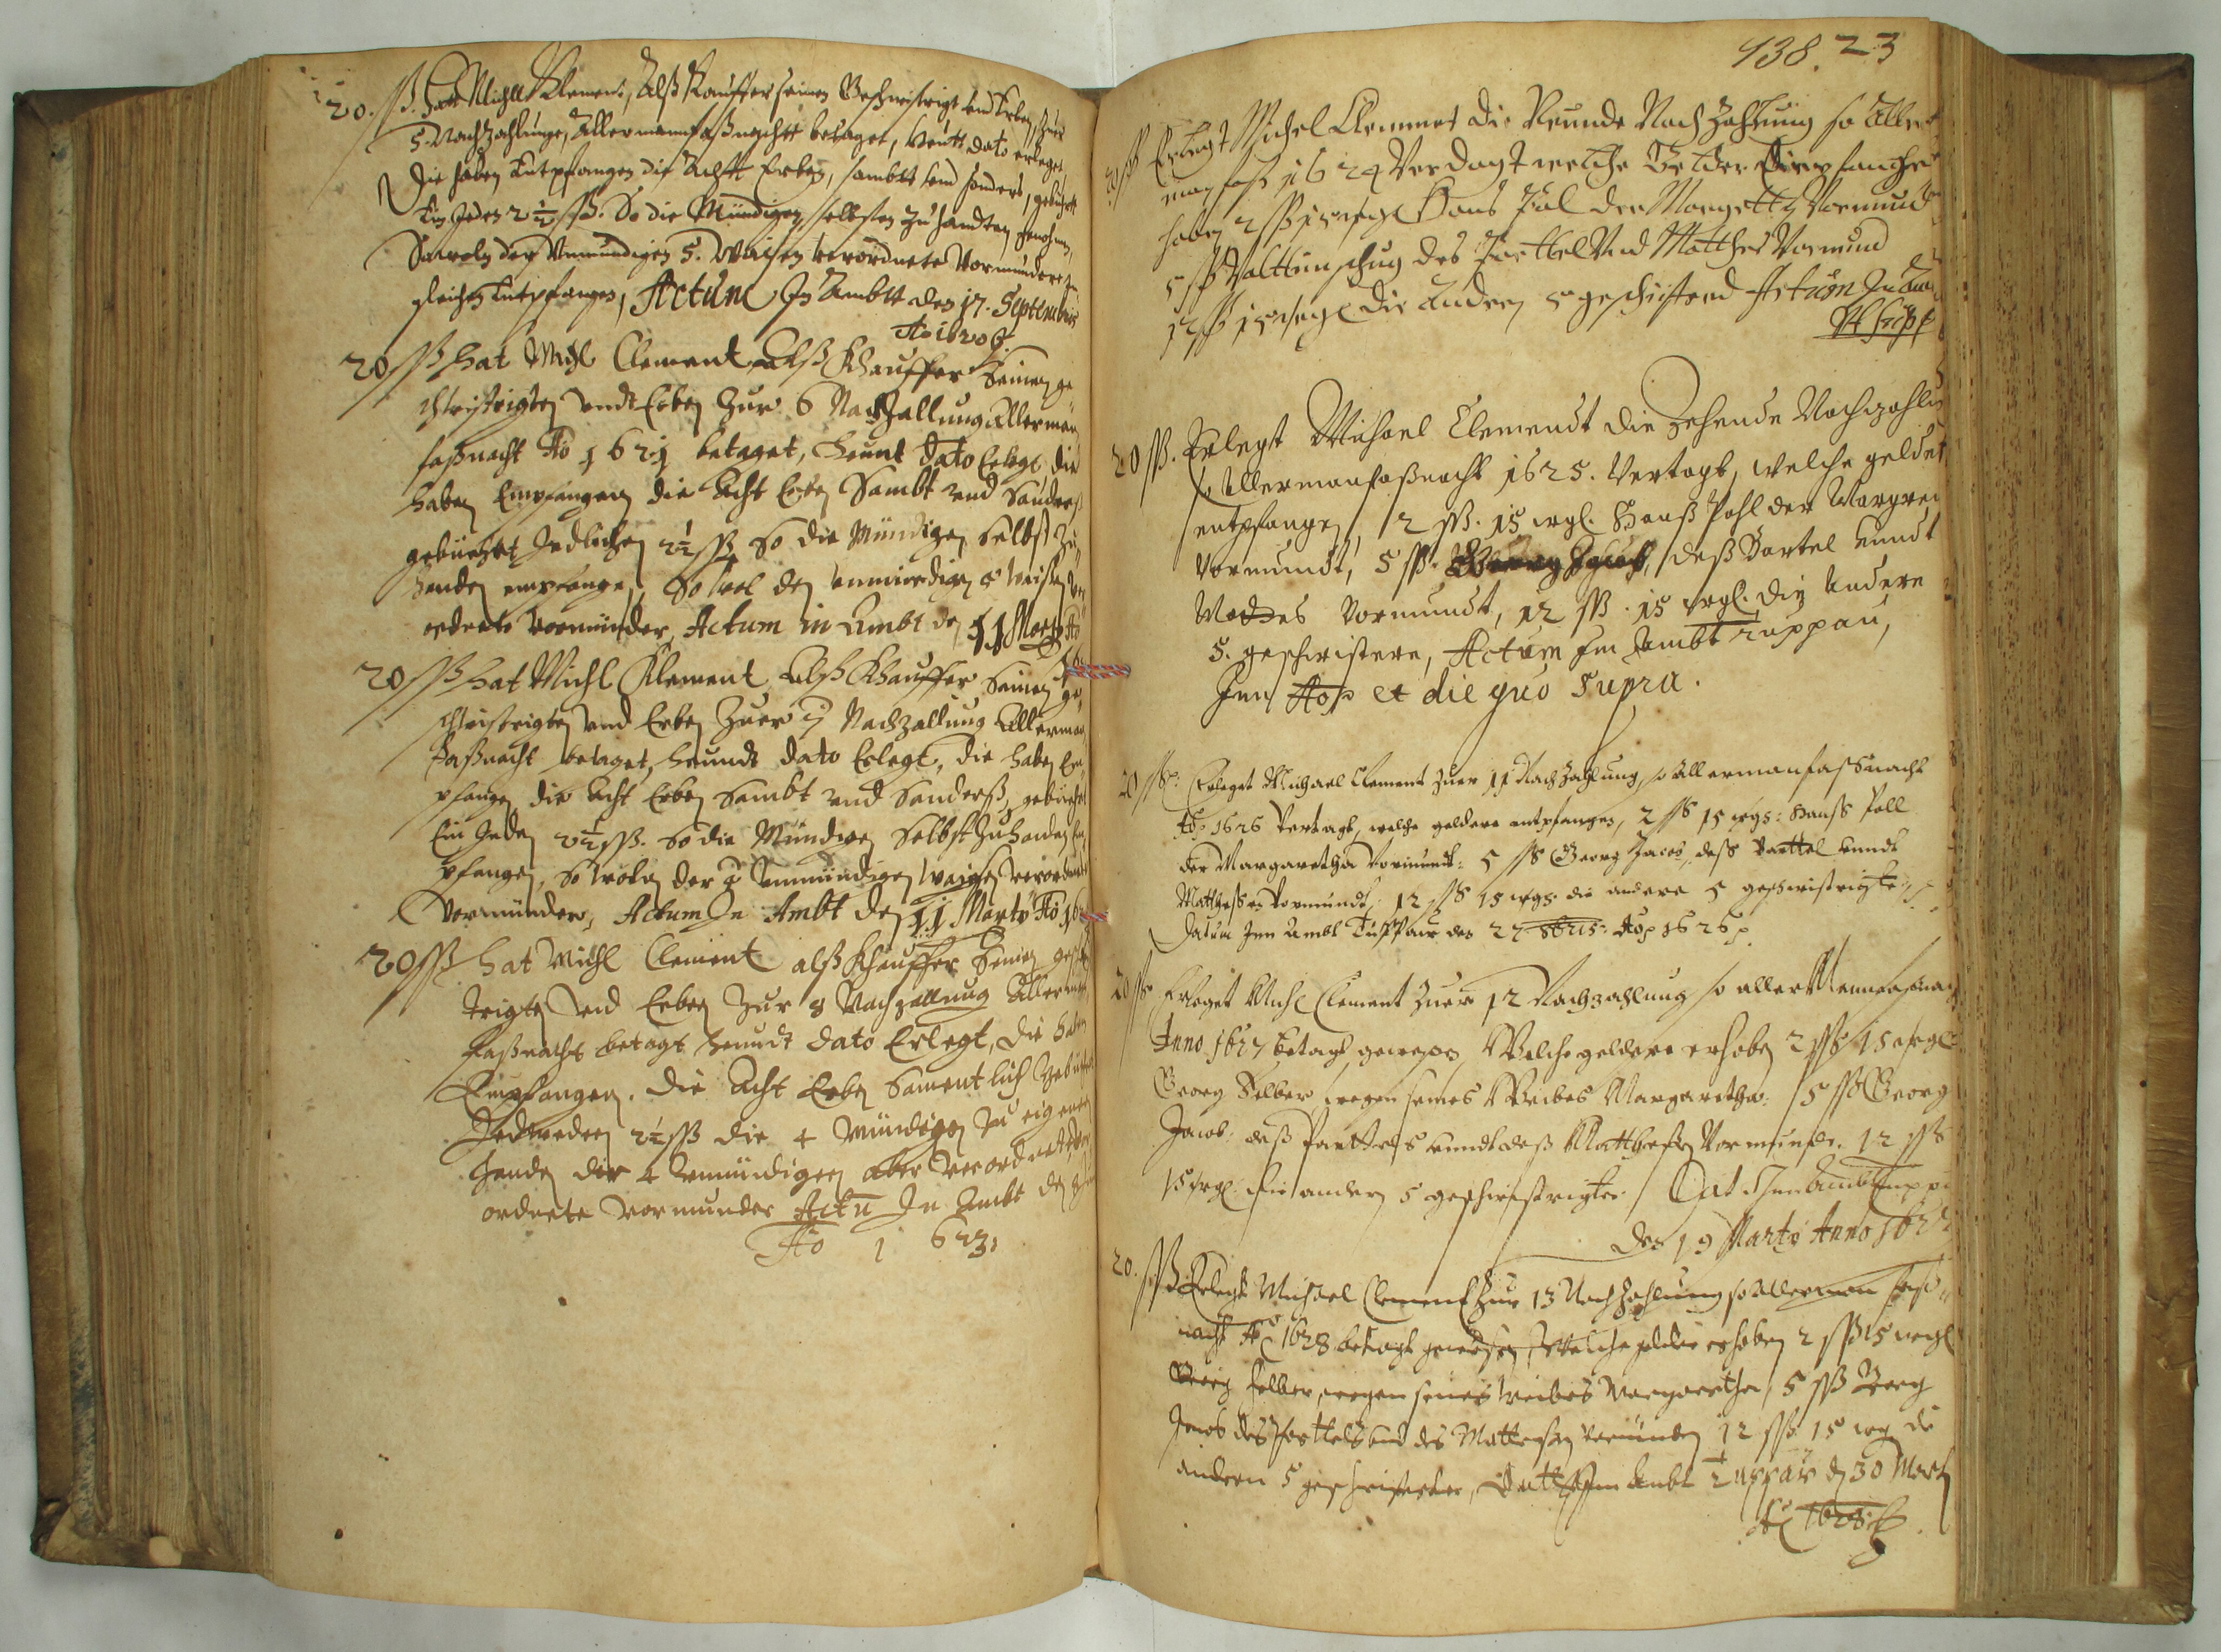 20. ſß. Hat Michl Klement, Alß Kauffer seinen Geschwistrigt und Erben, Zuer
5. Nachzahlunge, Allermannfaßnacht betaget, heutt dato erleget,
Die haben Entpfangen die Acht Erben, sambtt und sonders, gebührtt
Ein Jeden 2½ ſß. So die Mündigen, selbsten zu handten genohmen,
Sowoln der Unmündigen 5. Waisen verordnete Vormündere zu
gleichen Entpfangen, Actum In Ambtt den 17. Septembris
Ao 1620
20 ſß hat Michl Clement Alß Khauffer Seinen ge
schwistrigten undt Erben Zur 6 Nachzallung Allerman
faßnacht Ao 1621 betaget, heunt Dato Erlegt die
haben Empfangen die Acht Erben Sambt und Sonders
gebüehrt Jedlichen 2½ ſß So die Mündigen Selbst Zu
handen empfangen, Sowol der unmündigen 5 Waisen ver
ordnete Vormünder, Actum in Ambt den 11 Marty Ao
20 ſß hat Michl Klement Alß Khauffer Seinen ge
schwistrigten und Erben Zuer 7 Nachzallung Allerman
Faßnacht betaget, heundt dato Erlegt, Die haben Em
pfangen die Acht Erben Sambt und Sonderß, gebüehrt
Ein Jeden 2½ ſß. So die Mündigen Selbst Zuhanden Em
pfangen, So wohln der Unmündigen Waisen verordnete
Vormünder, Actum In Ambt den 11 Marty Ao 162
20 ſß hat Michl Clement alß Khauffer Seinen gesch
trigten und Erben Zur 8 Nachzallung Allerman
Faßnacht betagt heundt dato Erlegt, Die haben
Empfangen. Die Acht Erben Samentlich Gebührt
Jedweden 2½ ſß die 4 Mündigen Zu eigenen
handen der 4 Unmündigen aber verordnete ver
ordnete Vormunder Actu In Ambt den
Ao 1623.
438. 23
20 ſß Erlegt Michel Clemmet die Neunde Nach Zahlung so Aller
man faß 1624 Verdagt welche Gelder Empfanchen
haben 2 ſß 15 wgl Hans Pol der Margetty Vormund
5 ſß des Barttel Und Matthes Vormund
12 ſß 15 wgl die Andern 5 geschwisterd Actum In Am
20 ſß. Erlegt Michael Clemendt die Zehende Nachzahlu
so Allermanfaßnacht 1625. Vertagt, welche gelder
entpfangen, 2 ſß. 15 wgl. Hanß Pohl der Margre
Vormundt, 5 ſß. Georg Jacob, deß Bartel unndt
Mattes Vormundt, 12 ſß. 15 wgl. die Andere
5. geschwistere, Actum im Ambt Tuppau,
Inn Ao et die quo Supra.
20 ſß. Erleget Michael Clement Zuer 11 Nachzahlung, so Allermanfaßnacht
Ao 1626 Vertagt, welche geldere entpfangen, 2 ſß 15 wgs: Hanß Poll
der Margaretha Vormundt: 5 ſß Georg Jacob, deß Barttel unndt
Matthessen Vormundt, 12 ſß 15 wgs. die andere 5 geschwistrigte,
Datum Inn Ambt Tuppau den 27 Ao 1626
20 ſß Erleget Michl Clement Zuer 12 Nachzahlung so aller Mannfasnach
Anno 1627 betagt gewesen, Welche geldere erhoben 2 ſß 15 wgl
Georg Felber, wegen seines Weibes Margaretha, 5 ſß Georg
Jacob: deß Parttels unndt deß Matthessen Vormundt. 12 ſß
15 wgl. die andern 5 geschwistrigte. Dat Inn Ambt Tuppa
den 19 Marty Anno 1627
20. ſß Erlegt Michael Clement Zur 13 Nachzahlung so Allerman faß
nacht Ao 1628 betagt gewessen, Welche gelder erhoben 2 ſß 15 wgl
Georg Felber, wegen seines weibes Margaretha, 5 ſß Georg
Jacob des Parttels und des Mattessen Vormünden 12 ſß 15 wg die
andern 5 geschwisterte, Datt Im Ambt Tuppau d 30 Marty
Ao 1628